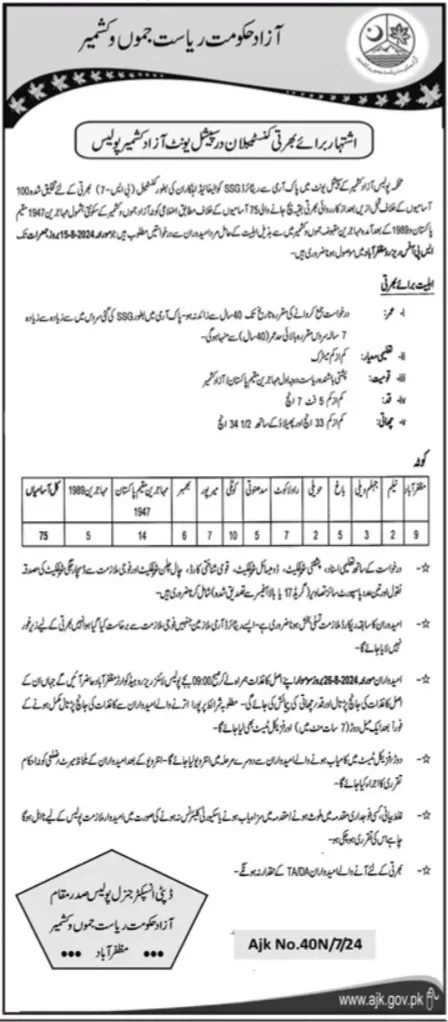 آزاد حکومت ریاست جموں و کشمیر
اشتہار برائے بھرتی کنسٹیبلان در سپیشل یونٹ آزاد کشمیر پولیس
محکمہ پولیس آزاد کشمیر کے سپیشل یونٹ میں پاک آرمی سے ریٹائرڈ SSG کوالیفائیڈ اہلکاران کی بطور کنسٹیبل (بی ایس-7) بھرتی کے لئے تخلیق شدہ 100
آسامیوں کے خلاف قبل ازیں بعد از کارروائی بھرتی بقیہ بچ جانے والی 75 آسامیوں کے خلاف مطابق اضلاعی کوٹہ آزاد جموں و کشمیر کے سکونتی بشمول مہاجرین 1947 مقیم
پاکستان و 1989 کے بعد آمدہ مہاجرین مقبوضہ جموں و کشمیر میں سے بذیل اہلیت کے حامل مرد امیدواران سے درخواستیں مطلوب ہیں جو مورخہ 15-8-2024 بروز جمعرات تک
ایس پی آفس ریزرو مظفرآباد میں موصول ہونا ضروری ہیں۔
اہلیت برائے بھرتی
i- عمر: درخواست جمع کروانے کی مقررہ تاریخ تک 40 سال سے زائد نہ ہو۔ پاک آرمی میں بطور SSG کی گئی سروس میں سے زیادہ سے زیادہ
7 سالہ سروس مقررہ بالائی حد عمر (40 سال) سے منہا ہوگی۔
ii- تعلیمی معیار: کم از کم میٹرک
iii- قومیت: پشتنی باشندہ ریاست درجہ اول مہاجرین مقیم پاکستان/آزاد کشمیر
iv- قد: کم از کم 5 فٹ 7 انچ
v- چھاتی: کم از کم 33 انچ اور پھیلاؤ کے ساتھ 34 1/2 انچ
کوٹہ
مظفرآباد نیلم جہلم ویلی باغ حویلی راولاکوٹ سدھنوتی کوٹلی میرپور بھمبر مہاجرین مقیم پاکستان 1947 مہاجرین 1989 کل آسامیاں
9 2 3 5 2 7 5 10 7 6 14 5 75
☆- درخواست کے ساتھ تعلیمی اسناد، پشتنی سرٹیفکیٹ، ڈومیسائل سرٹیفکیٹ، قومی شناختی کارڈ، چال چلن سرٹیفکیٹ اور فوجی ملازمت سے ڈسچارج سرٹیفکیٹ کی مصدقہ
نقول اور تین عدد پاسپورٹ سائز تصاویر (گریڈ 17 یا بالا آفیسر سے تصدیق شدہ) شامل کرنا ضروری ہیں۔
☆- امیدواران کا سابقہ ریکارڈ ملازمت تسلی بخش ہونا ضروری ہے۔ ایسے ریٹائرڈ آرمی ملازمین جنہیں فوجی ملازمت سے برخاست کیا گیا ہو انہیں بھرتی کے لیے زیر غور
نہیں لایا جائے گا۔
☆- امیدواران مورخہ 26-8-2024 بروز سوموار اپنے اصل کاغذات ہمراہ لے کر صبح 09:00 بجے پولیس لائنز ریزرو ہیڈ کوارٹرز مظفرآباد حاضر آئیں گے جہاں ان کے
اصل کاغذات کی جانچ پڑتال اور قد و چھاتی کی پیمائش کی جائے گی۔ مطلوبہ شرائط پر پورا اترنے والے امیدواران سے کاغذات کی جانچ پڑتال مکمل ہونے کے
فوراً بعد ایک میل دوڑ (7 سات منٹ میں) اور فزیکل ٹیسٹ بھی لیا جائے گا۔
☆- دوڑ و فزیکل ٹیسٹ میں کامیاب ہونے والے امیدواران سے دوسرے مرحلہ میں انٹرویو لیا جائے گا۔ انٹرویو کے بعد امیدواران کے بلحاظ میرٹ و ضلعی کوٹہ احکام
تقرری کا اجراء کیا جائے گا۔
☆- غلط بیانی، کسی فوجداری مقدمہ میں ملوث ہونے/مقدمہ میں سزا یاب ہونے یا سیکورٹی کلیئرنس نہ ہونے کی صورت میں امیدوار ملازمت پولیس کے لیے نا اہل ہوگا
چاہے اس کی تقرری ہو چکی ہو۔
☆- بھرتی کے لئے آنے والے امیدواران TA/DA کے حقدار نہ ہونگے۔
ڈپٹی انسپکٹر جنرل پولیس صدر مقام
آزاد حکومت ریاست جموں و کشمیر
••• مظفرآباد •••
Ajk No.40N/7/24
www.ajk.gov.pk